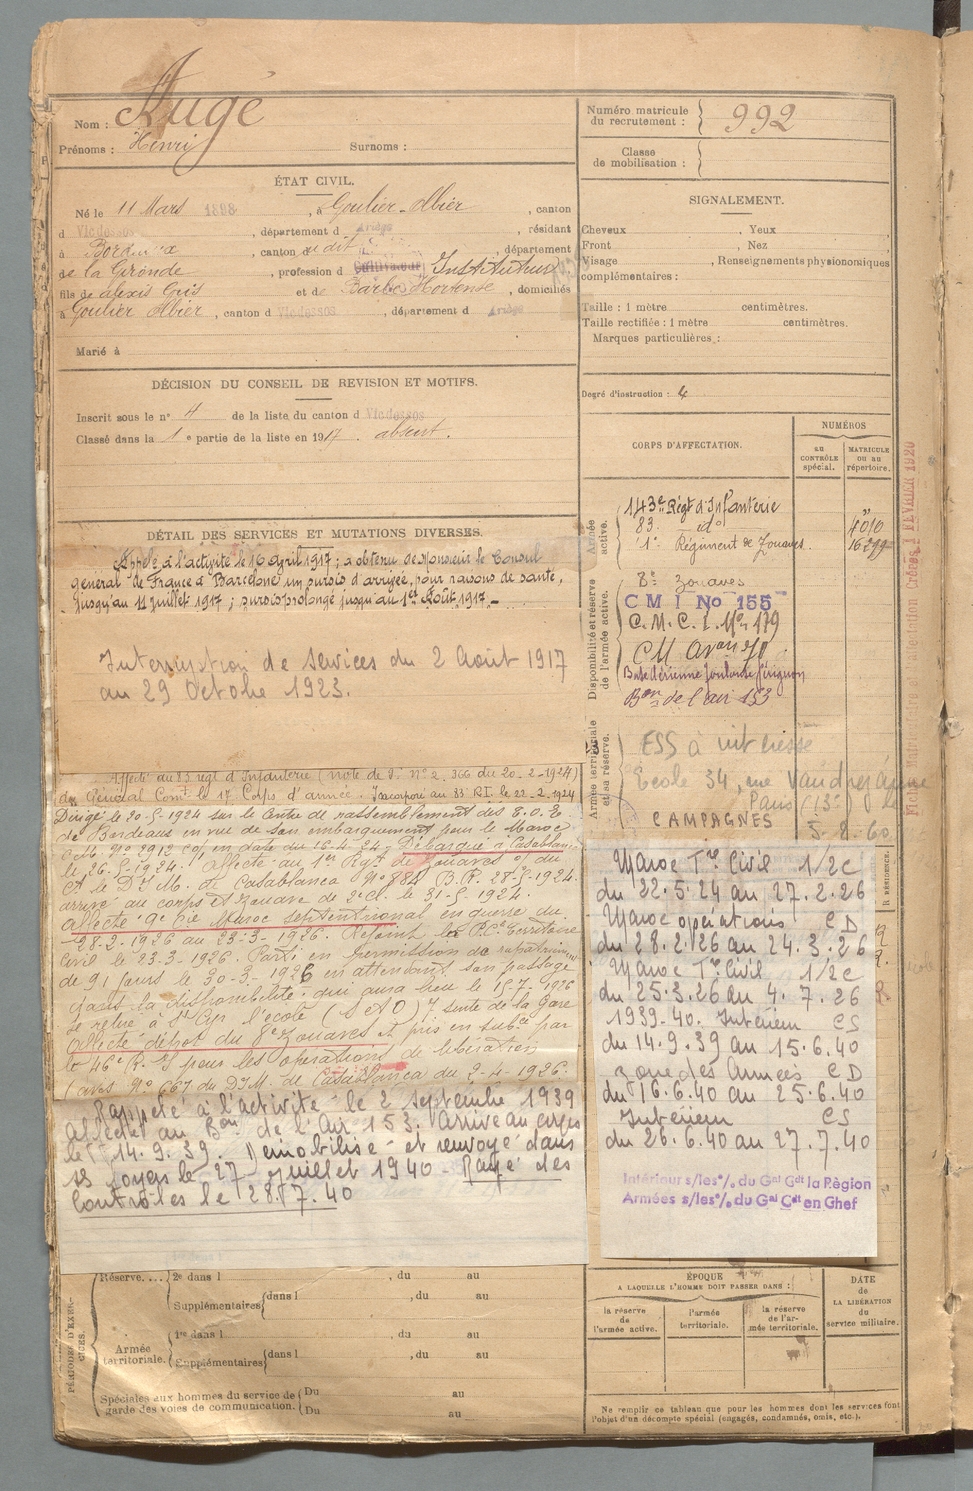 Nom : Augé
Prénoms : Henri Surnoms :
Numéro matricule du recrutement : 992
Classe de mobilisation :
ÉTAT CIVIL.
Né le 11 Mars 1898, à Goulier-Olbier, canton
d Vicdessos, département d Ariège, résidant
à Bordeaux, canton du dit, département
de la Gironde, profession d Cultivateur Instituteur
fils de Alexis Cris et de Barbe Hortense, domiciliés
à Goulier Olbier, canton d Vicdessos, département d Ariège
Marié à
SIGNALEMENT.
Cheveux , Yeux
Front , Nez
Visage , Renseignements physionomiques
complémentaires :
Taille : 1 mètre centimètres.
Taille rectifiée : 1 mètre centimètres.
Marques particulières :
Degré d'instruction : 4
DÉCISION DU CONSEIL DE REVISION ET MOTIFS.
Inscrit sous le n° 4 de la liste du canton d Vicdessos
Classé dans la 1e partie de la liste en 1917. absent.
DÉTAIL DES SERVICES ET MUTATIONS DIVERSES.
Appelé à l'activité le 16 avril 1917 ; a obtenu de Monsieur le Consul
général de France à Barcelone un sursis d'arrivée, pour raisons de santé,
jusqu'au 11 juillet 1917 ; sursis prolongé jusqu'au 1er Août 1917.-
Interruption de services du 2 Août 1917
au 29 Octobre 1923.
Affecté au 83 régt d'Infanterie (note de S. n° 2.366 du 20-2-1924)
du Général Comt le 17 Corps d'armée. Incorporé au 83 R.I. le 22-2-1924
Dirigé le 20-5-1924 sur le Centre de rassemblement des T.O.E.
de Bordeaux en vue de son embarquement pour le Maroc
en date du 16-4-24. Débarqué à Casablanca
le 26-5-1924. Affecté au 1er Rgt de Zouaves
de Casablanca N° 984 B.R. 28-5-1924.
arrivé au corps et Zouave de 2e cl. le 31-5-1924.
Affecté 9e Cie Maroc septentrional en guerre du
28-2-1926 au 23-3-1926. Rejoint la P.Ce Territoire
Civil le 23-3-1926. Parti en permission de rapatriem
de 91 jours le 30-3-1926 en attendant son passage
dans la disponibilité qui aura lieu le 15-7-1926
se retire à l'école (SAO) sente de la Gare
Affecté dépôt du 8e Zouaves et pris en subce par
le 46e R.I. pour les opérations de libération
(avis N° 667 du D.I.M. de Casablanca du 2-4-1926.
Rappelé à l'activité le 2 Septembre 1939
affecté au Bon de l'Air 153. Arrivé au corps
le 14.9.39. Démobilisé et renvoyé dans
ses foyers le 27 juillet 1940 Rayé des
Contrôles le 28.7.40
CORPS D'AFFECTATION.
NUMÉROS
au CONTRÔLE spécial.
MATRICULE ou au répertoire.
Armée active.
143e Régt d'Infanterie "
83. do 4010
1er Régiment de Zouaves. 16299
Disponibilité et réserve de l'armée active.
8e Zouaves
C M I No 155
C.M.C.I. No 179
Base Aérienne Toulouse Pérignon
Bon de l'air 153
Armée territoriale et sa réserve.
ESS à
Ecole 34, rue Vandrezanne
Paris (13e) le
5-8-60
CAMPAGNES
Maroc Tre Civil 1/2C
du 22.5.24 au 27.2.26
Maroc opérations CD
du 28.2.26 au 24.3.26
Maroc Tre Civil 1/2C
du 25.3.26 au 4.7.26
1939-40. Intérieur CS
du 14.9.39 au 15.6.40
zone des Armées CD
du 16.6.40 au 25.6.40
Intérieur CS
du 26.6.40 au 27.7.40
Intérieur s/les°/. du Gal Cdt la Région
Armées s/les°/. du Gal Cdt en Chef
PÉRIODES D'EXERCICES.
Réserve.... 2e dans l , du au
Supplémentaires dans l , du au
Armée territoriale. 1re dans l , du au
Supplémentaires dans l , du au
Spéciales aux hommes du service de garde des voies de communication. Du au
Du au
ÉPOQUE
A LAQUELLE L'HOMME DOIT PASSER DANS :
la réserve de l'armée active.
l'armée territoriale.
la réserve de l'armée territoriale.
DATE de LA LIBÉRATION du service militaire.
Ne remplir ce tableau que pour les hommes dont les services font
l'objet d'un décompte spécial (engagés, condamnés, omis, etc.).